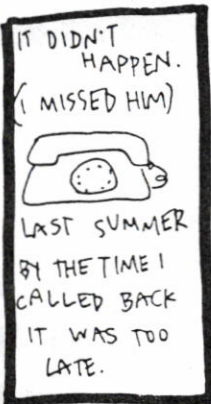 IT DIDN'T
HAPPEN.
(I MISSED HIM)
LAST SUMMER
BY THE TIME I
CALLED BACK
IT WAS TOO
LATE.